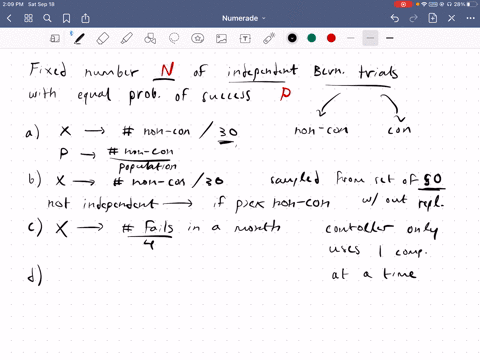 2:09 PM Sat Sep 18
28%
Numerade
Fixed number N of independent Bern. trials
with equal prob. of success p
non-con con
a) X → # non-con / 30
P → # non-con / population
b) X → # non-con / 30 sampled from set of 50
not independent → if pick non-con w/out repl.
c) X → # fails in a month
4
contoller only
uses 1 comp.
at a time
d)